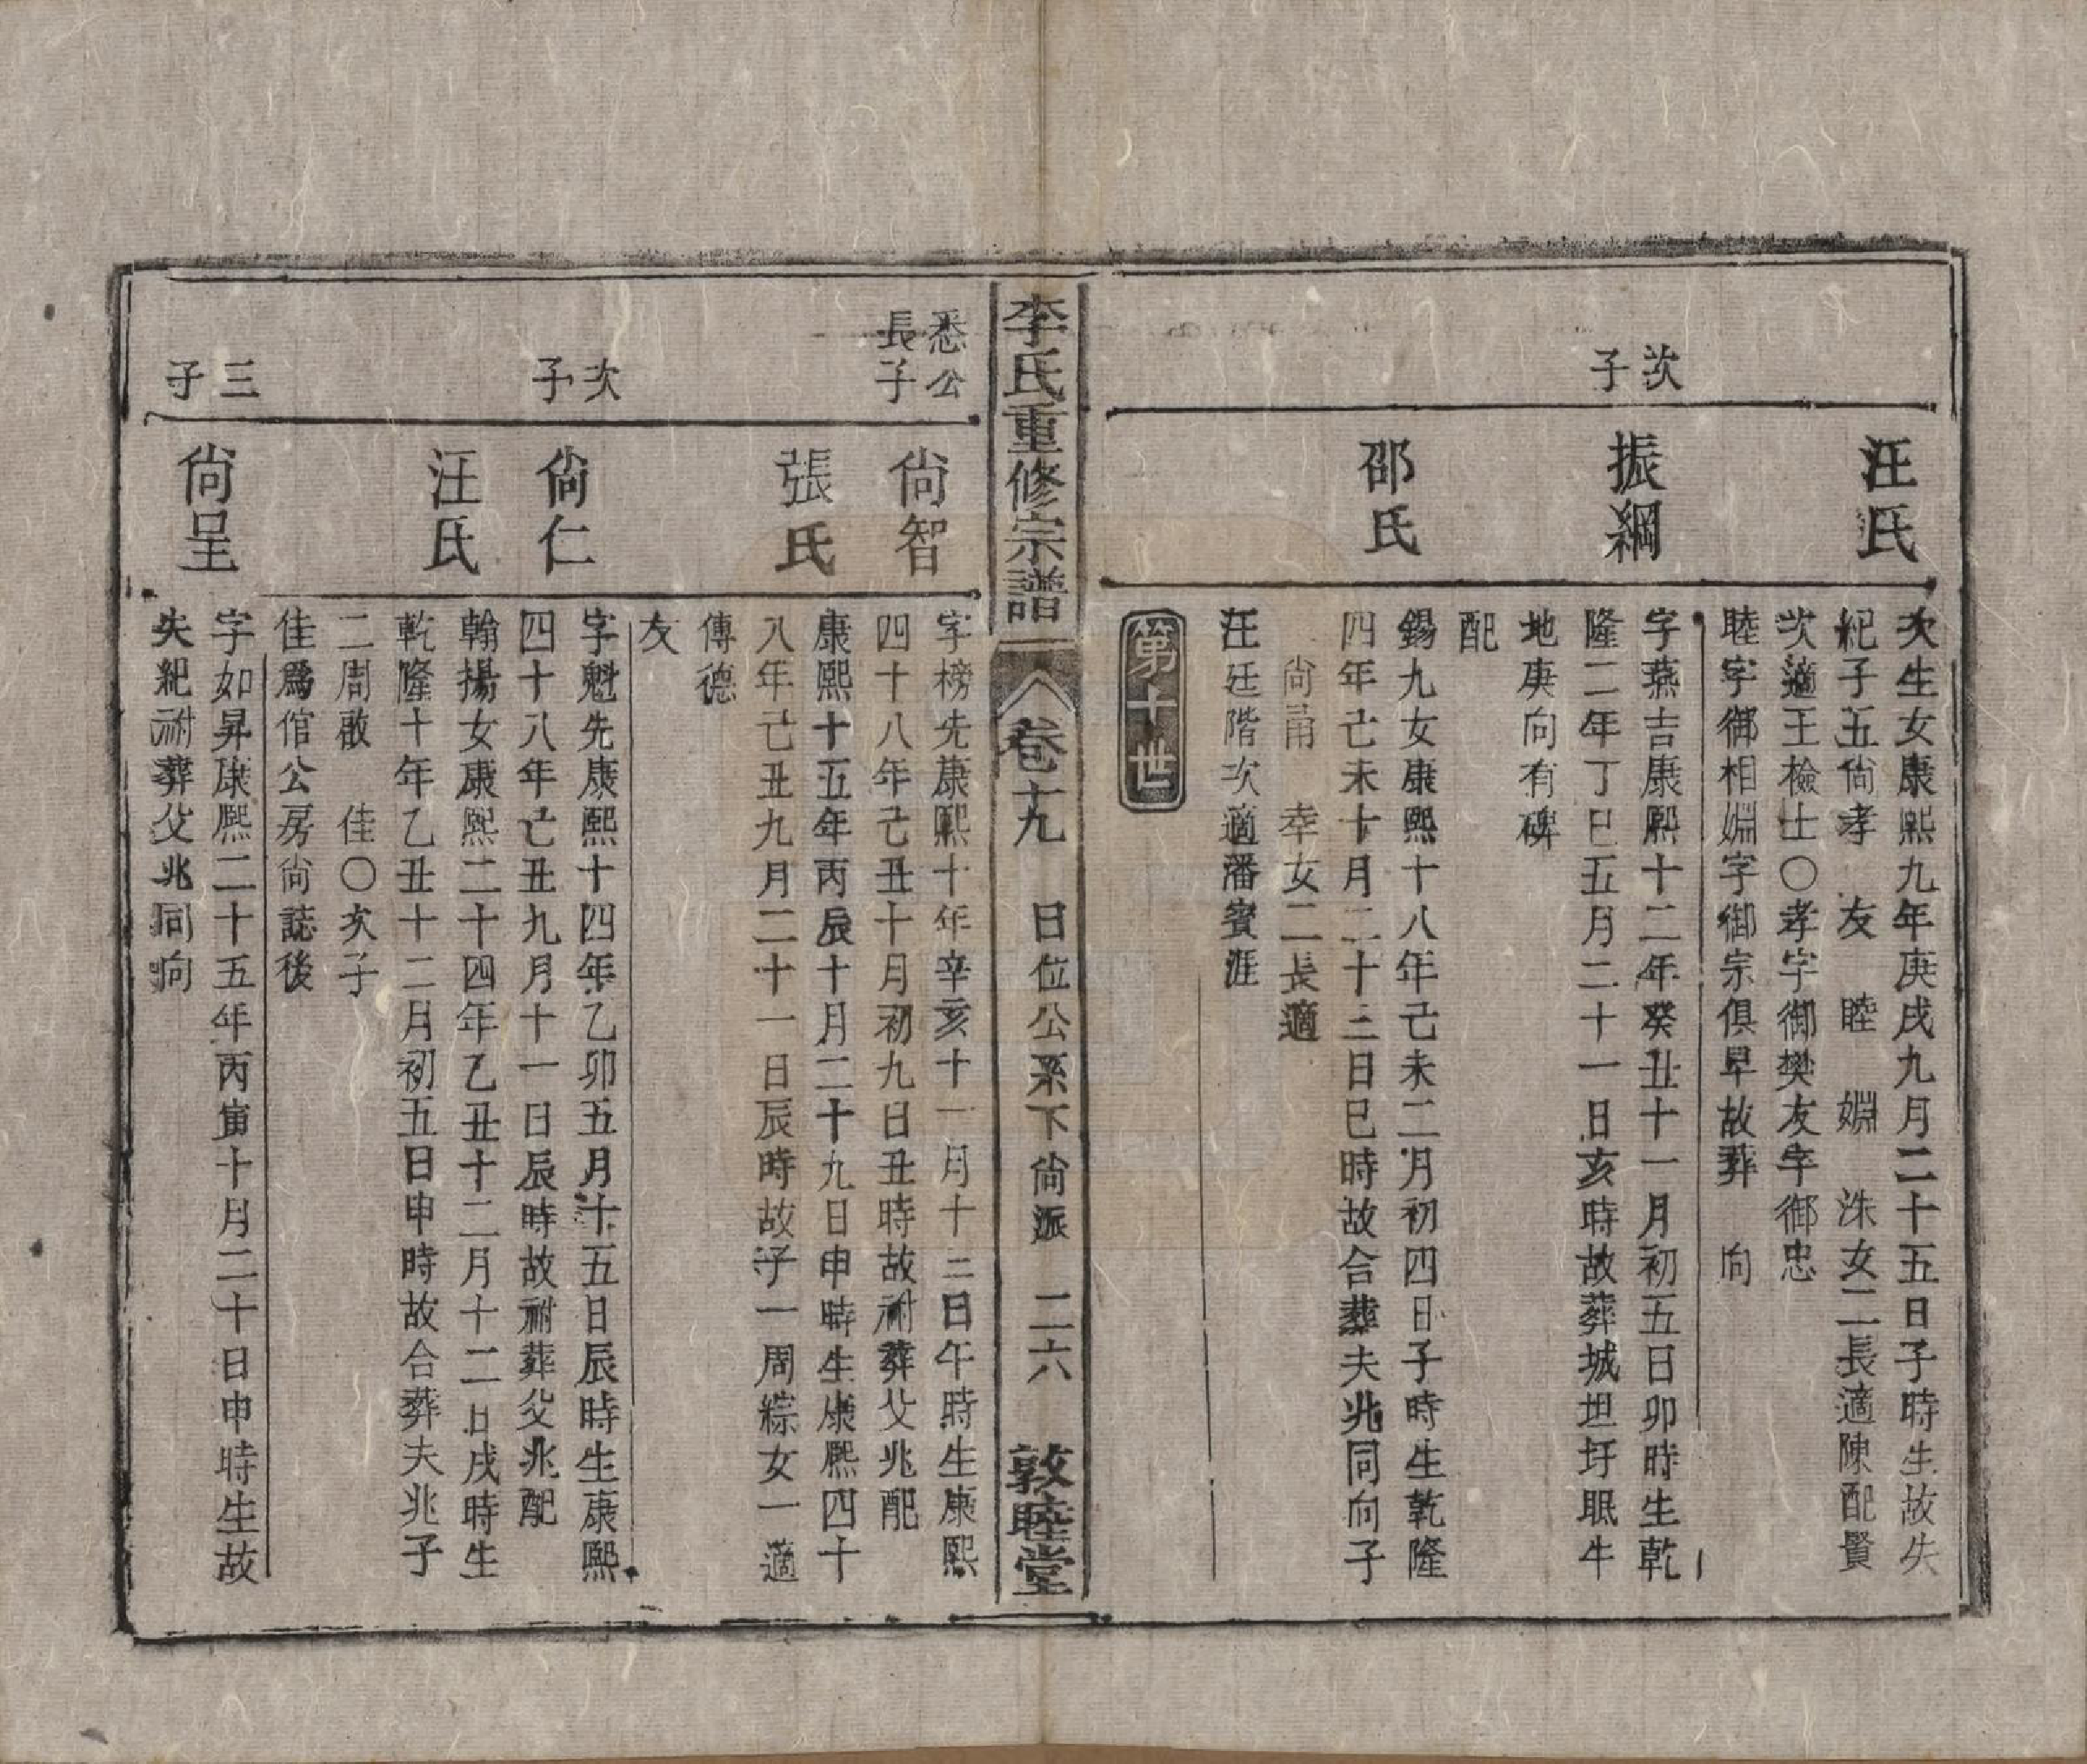 汪氏
次生女康熙九年庚戌九月二十五日子時生故失
紀子五尙孝 友 睦 婣 洙女二長適陳配賢
次適王檢士〇孝字御樊友字御忠
睦字御相婣字御宗俱早故葬 向
次子
振綱
字燕吉康熙十二年癸丑十一月初五日卯時生乾
隆二年丁巳五月二十一日亥時故葬城世圩眠牛
地庚向有碑
配
邵氏
錫九女康熙十八年己未二月初四日子時生乾隆
四年己未十月二十三日巳時故合葬夫兆同向子
尙甭 幸女二長適
汪廷階次適潘賓涯
第十世
李氏重修宗譜 卷十九 日位公系下尙派 二六 敦睦堂
悉公長子
尙智
字榜先康熙十年辛亥十一月十二日午時生康熙
四十八年己丑十月初九日丑時故祔葬父兆配
張氏
康熙十五年丙辰十月二十九日申時生康熙四十
八年己丑九月二十一日辰時故子一周綜女一適
傅德
友
次子
尙仁
字魁先康熙十四年乙卯五月十五日辰時生康熙
四十八年己丑九月十一日辰時故祔葬父兆配
汪氏
翰揚女康熙二十四年乙丑十二月十二日戌時生
乾隆十年乙丑十二月初五日申時故合葬夫兆子
二周敢 佳〇次子
佳爲倌公房尙誌後
三子
尙呈
字如昇康熙二十五年丙寅十月二十日申時生故
失紀祔葬父兆同向